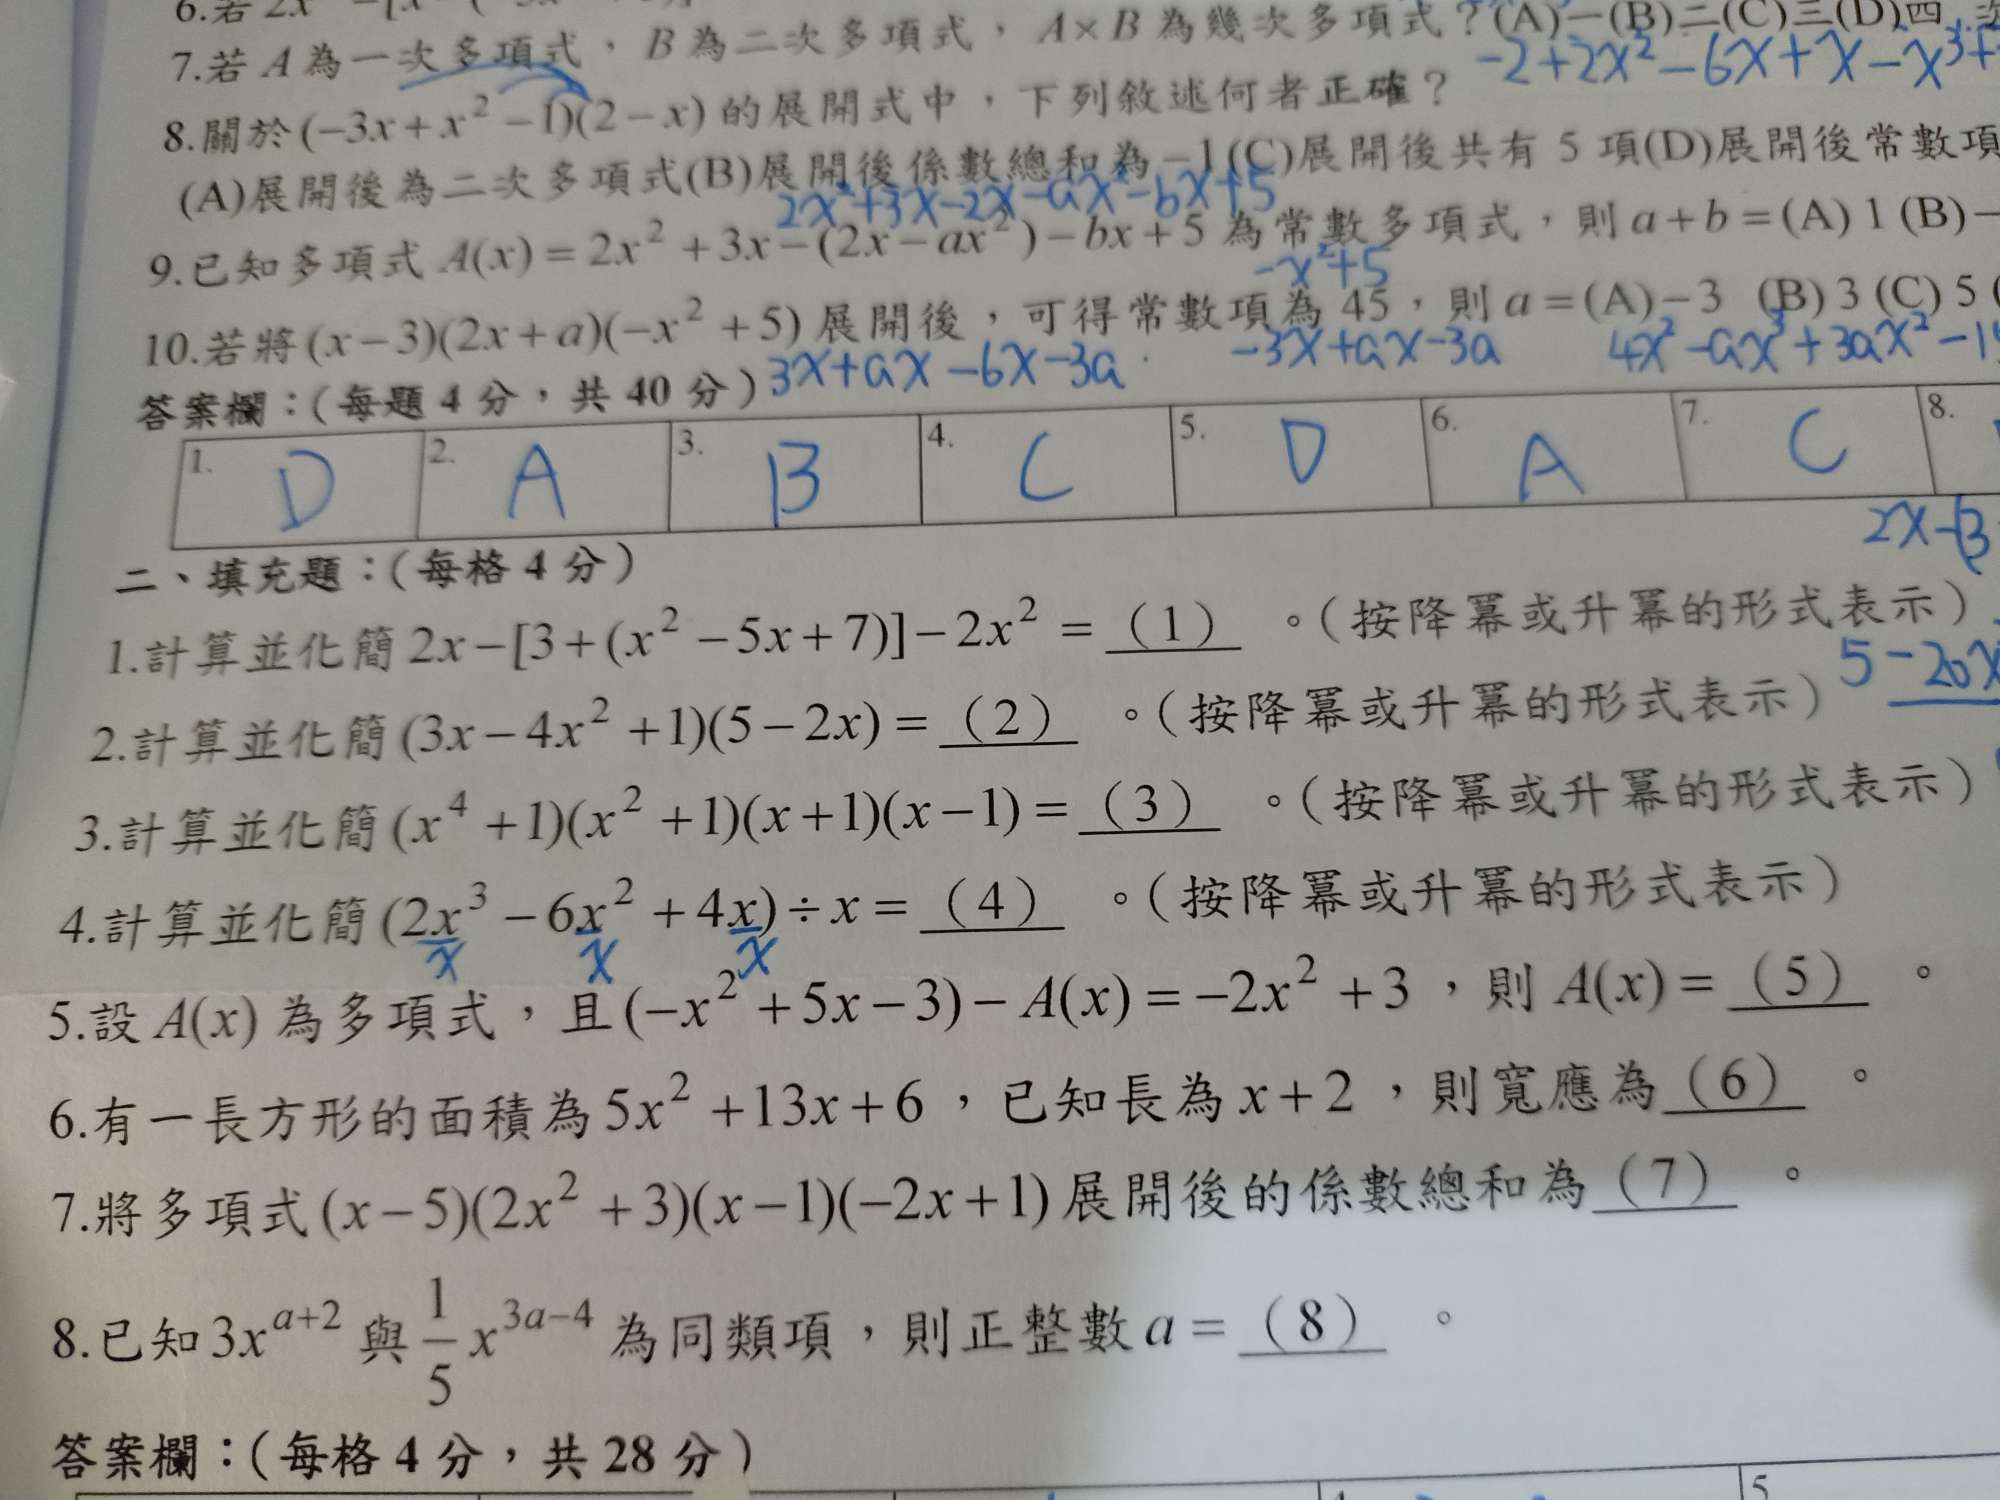 7.若 A 為一次多項式，B 為二次多項式，A×B 為幾次多項式？(A)一(B)二(C)三(D)四
-2+2x²-6x+x-x³+
8.關於 (-3x+x²-1)(2-x) 的展開式中，下列敘述何者正確？
(A)展開後為二次多項式(B)展開後係數總和為-1(C)展開後共有 5 項(D)展開後常數項
2x²+3x-2x-ax²-bx+5
9.已知多項式 A(x)=2x²+3x-(2x-ax²)-bx+5 為常數多項式，則 a+b=(A) 1 (B)-
-x²+5
10.若將 (x-3)(2x+a)(-x²+5) 展開後，可得常數項為 45，則 a=(A)-3 (B) 3 (C) 5 (
3x+ax-6x-3a -3x+ax-3a 4x²-ax³+3ax²-1
答案欄：（每題 4 分，共 40 分）
1. D 2. A 3. B 4. C 5. D 6. A 7. C 8.
2x-(3
二、填充題：（每格 4 分）
1.計算並化簡 2x-[3+(x²-5x+7)]-2x²=（1）。（按降冪或升冪的形式表示）
5-20x
2.計算並化簡 (3x-4x²+1)(5-2x)=（2）。（按降冪或升冪的形式表示）
3.計算並化簡 (x⁴+1)(x²+1)(x+1)(x-1)=（3）。（按降冪或升冪的形式表示）
4.計算並化簡 (2x³-6x²+4x)÷x=（4）。（按降冪或升冪的形式表示）
x x x
5.設 A(x) 為多項式，且 (-x²+5x-3)-A(x)=-2x²+3，則 A(x)=（5）。
6.有一長方形的面積為 5x²+13x+6，已知長為 x+2，則寬應為（6）。
7.將多項式 (x-5)(2x²+3)(x-1)(-2x+1) 展開後的係數總和為（7）。
8.已知 3x^{a+2} 與 1/5 x^{3a-4} 為同類項，則正整數 a=（8）。
答案欄：（每格 4 分，共 28 分）
5